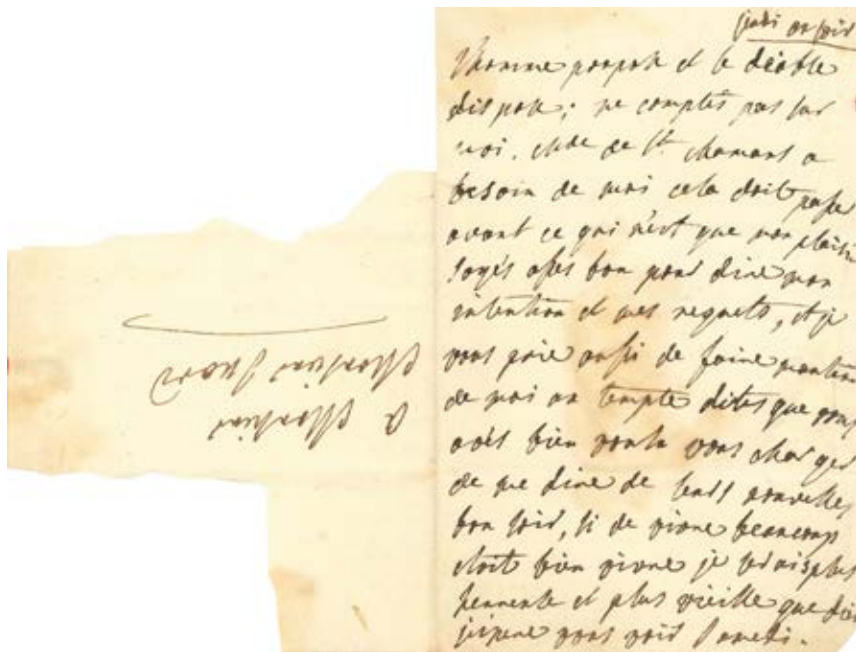 jeudi au soir
l'homme propose et le diable
dispose; ne comptés pas sur
moi. Mde de St. chamans a
besoin de moi cela doit passer
avant ce qui n'est que mon plaisir
soyés assés bon pour dire mon
intention et mes regrets, et je
vous prie aussi de faire mention
de moi au temple dites que vous
avés bien voulu vous charger
de me dire de leurs nouvelles
bon soir, si de vivre beaucoup
etoit bien vivre je serais plus
et plus vieille que dieu
j'espere vous voir samedi.
a Monsieur
Monsieur Suard